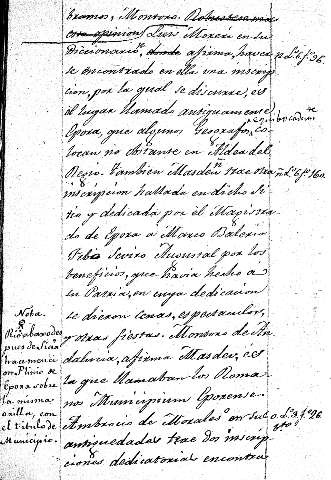 bramos, Montoro.
Luis Moreri en su
Diccionario, afirma, haver
se encontrado en ella una inscrip
cion, por la qual se discurre, es
el lugar llamado antiguamente
Epora, que algunos Geografos, co
locan no obstante en Aldea del
Rio. Tambien Masdeu trae otra
inscripcion hallada en dicho Si
tio y dedicada por el Magistra
do de Epora a Marco Valerio
Severo Augustal por los
beneficios, que havia hecho a
su Patria, en cuya dedicacion
se dieron cenas, espectaculos,
y otras fiestas. Montoro de An
dalucia, afirma Masdeu, es
la que llamaban los Roma
nos Municipium Eporense.
Ambrocio de Morales en sus
antiguedades trae dos inscrip
ciones dedicatorias encontra
Nota
pues de
hace menci
on Plinio de
Epora sobre
la misma
orilla, con
el titulo de
Municipio.